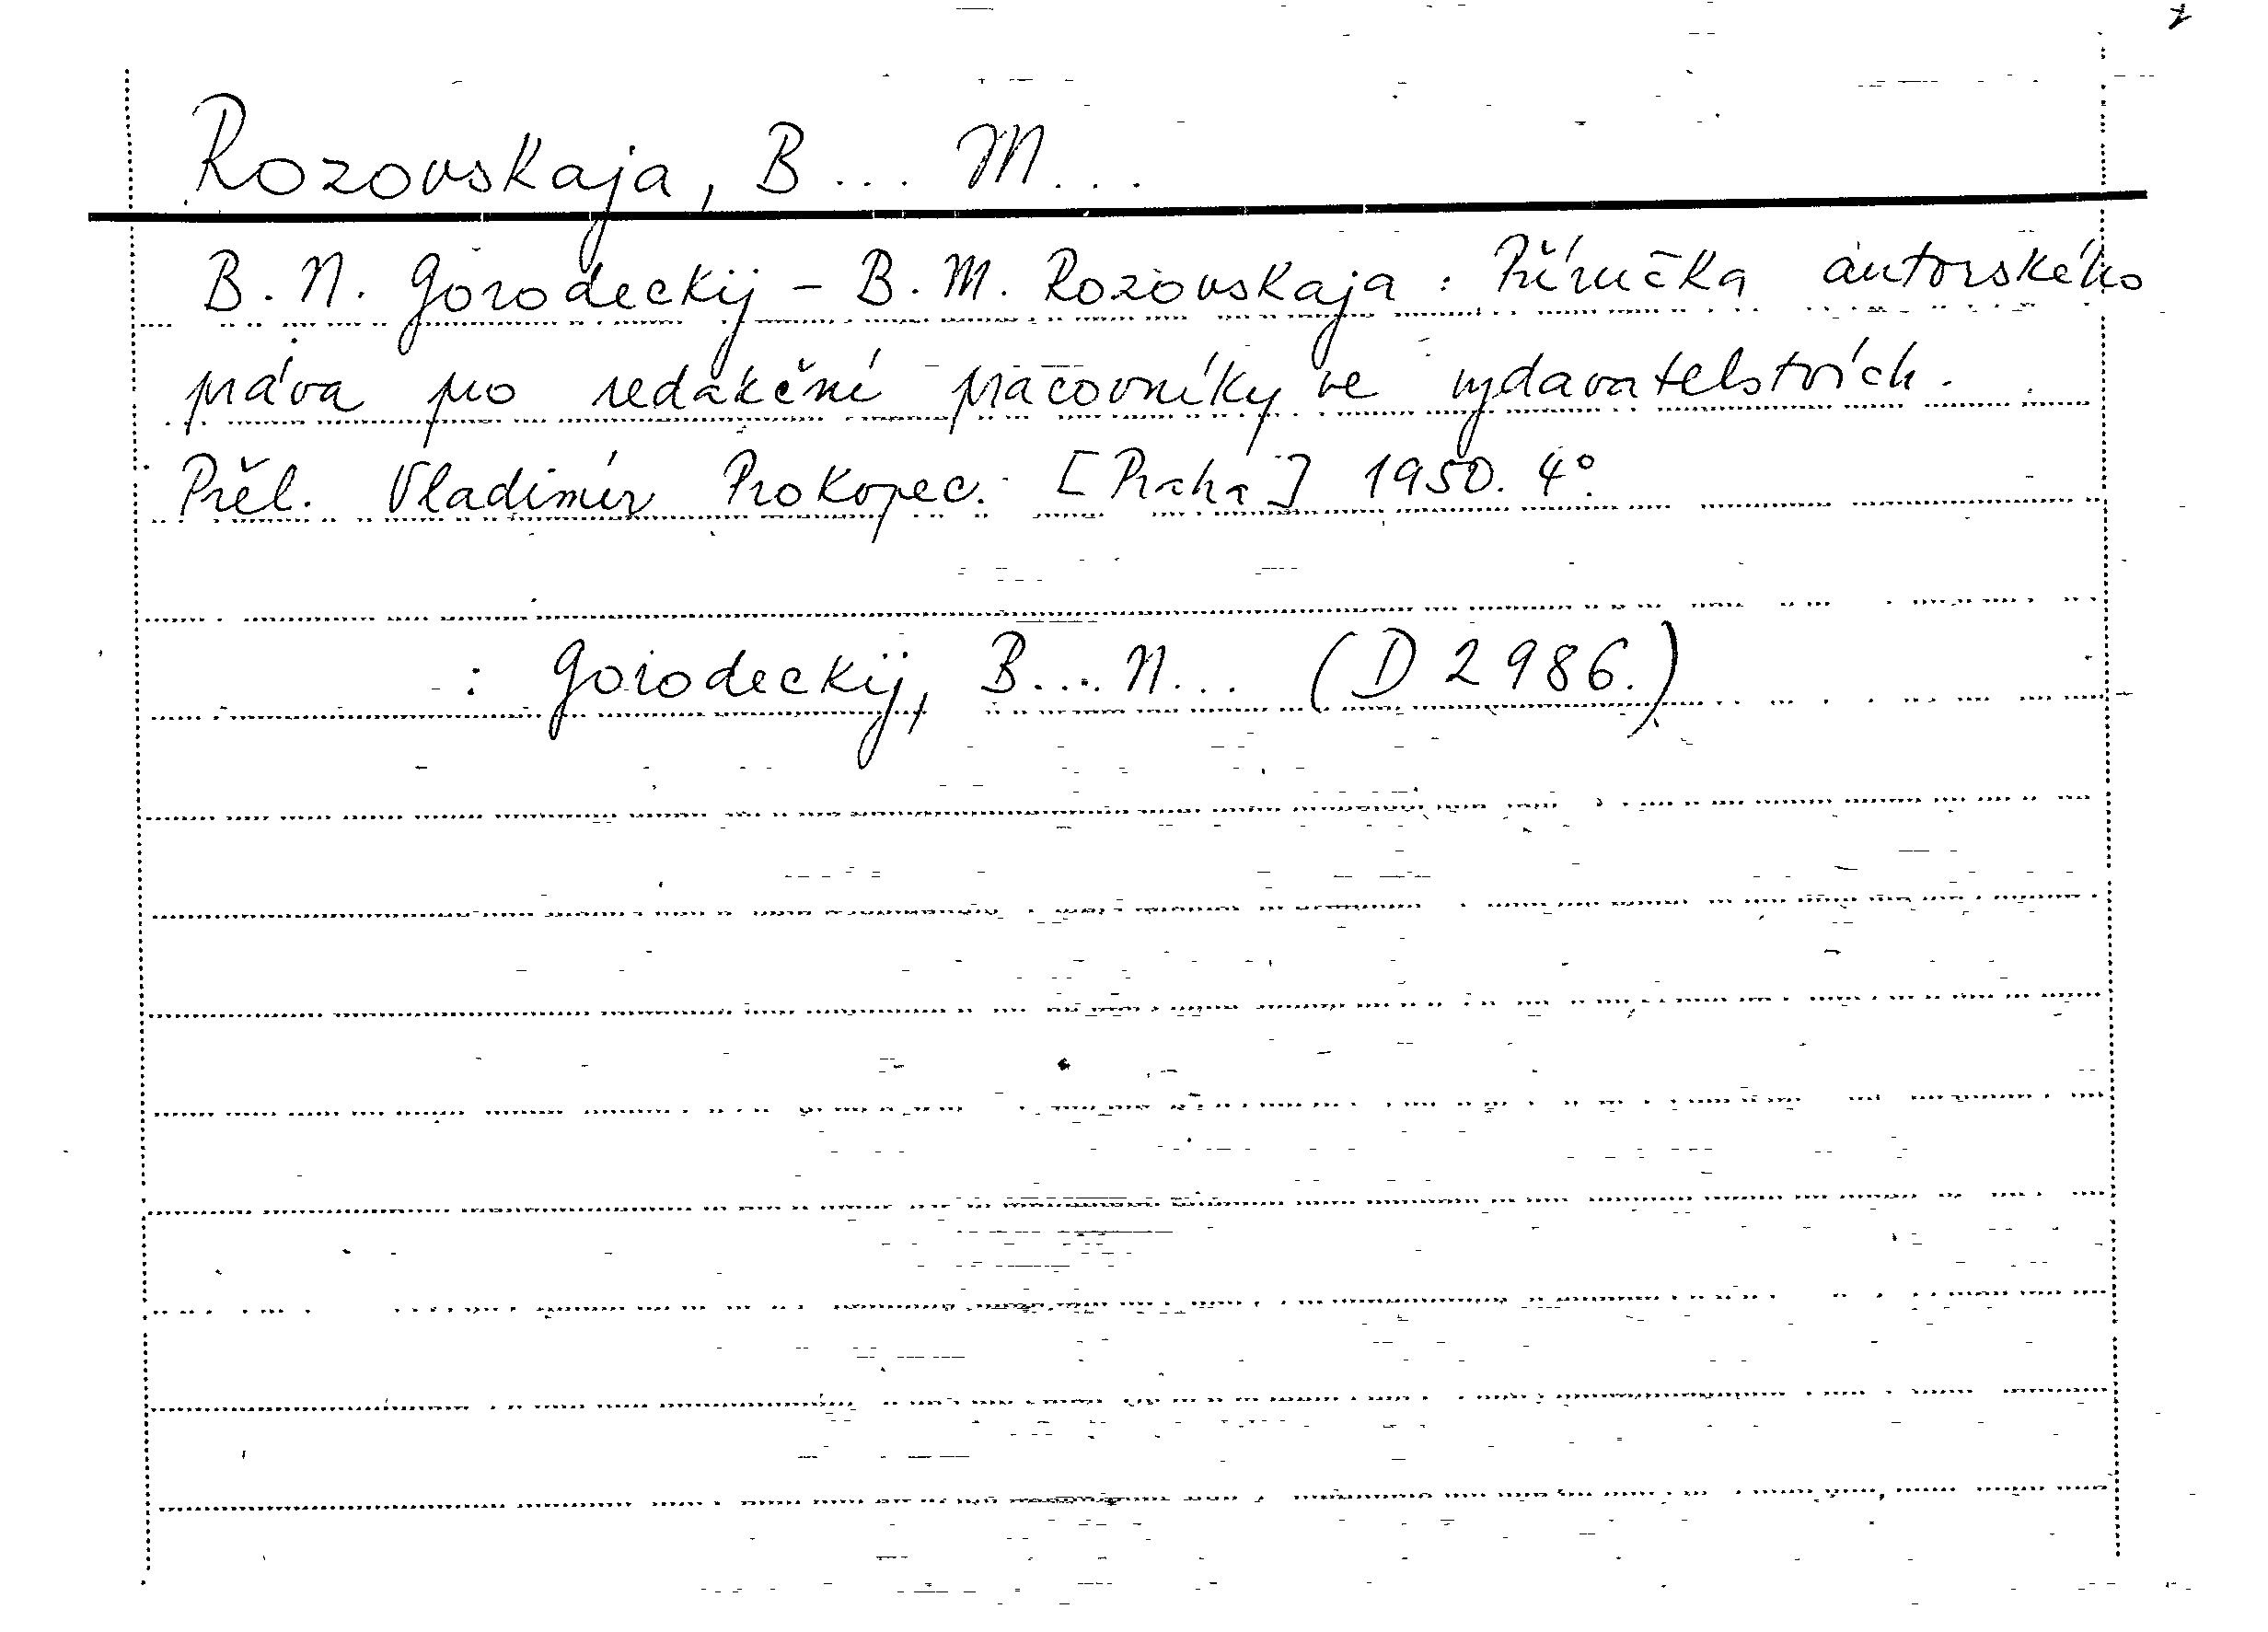 Rozovskaja, B... M...
B. N. Gorodeckij - B. M. Rozovskaja: Příručka autorského
práva pro redakční pracovníky ve vydavatelstvích.
Přel. Vladimír Prokopec. [Praha] 1950. 4°.
: Gorodeckij, B... N... (D 2986.)